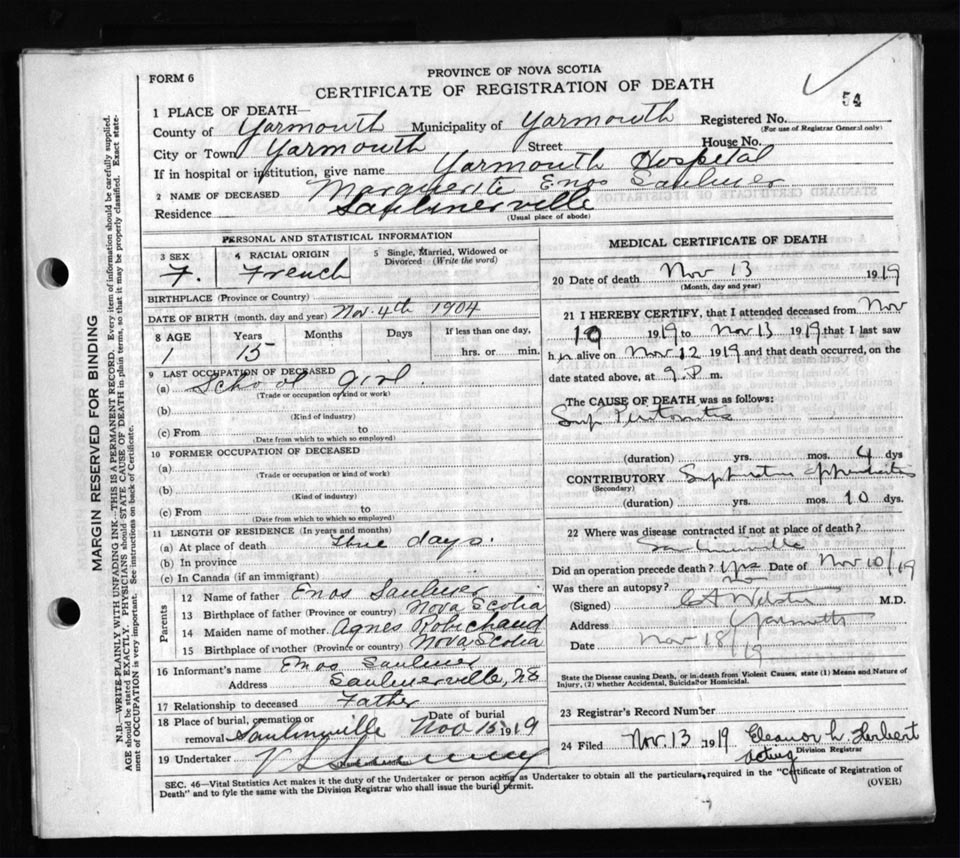 FORM 6
PROVINCE OF NOVA SCOTIA
CERTIFICATE OF REGISTRATION OF DEATH
54
1 PLACE OF DEATH—
County of Yarmouth Municipality of Yarmouth Registered No.
(For use of Registrar General only)
City or Town Yarmouth Street House No.
If in hospital or institution, give name Yarmouth Hospital
2 NAME OF DECEASED Marguerite Enos Saulnier
Residence Saulnierville
(Usual place of abode)
PERSONAL AND STATISTICAL INFORMATION
3 SEX F.
4 RACIAL ORIGIN French
5 Single, Married, Widowed or Divorced (Write the word)
BIRTHPLACE (Province or Country)
DATE OF BIRTH (month, day and year) Nov. 4th 1904
8 AGE Years Months Days If less than one day,
1 15 hrs. or min.
9 LAST OCCUPATION OF DECEASED
(a) School girl.
(Trade or occupation or kind or work)
(b)
(Kind of industry)
(c) From to
(Date from which to which so employed)
10 FORMER OCCUPATION OF DECEASED
(a)
(Trade or occupation or kind of work)
(b)
(Kind of industry)
(c) From to
(Date from which to which so employed)
11 LENGTH OF RESIDENCE (In years and months)
(a) At place of death days.
(b) In province
(c) In Canada (if an immigrant)
Parents
12 Name of father Enos Saulnier
13 Birthplace of father (Province or country) Nova Scotia
14 Maiden name of mother Agnes Robichaud
15 Birthplace of mother (Province or country) Nova Scotia
16 Informant's name Enos Saulnier
Address Saulnierville, NS
17 Relationship to deceased Father
18 Place of burial, cremation or removal Saulnierville Date of burial Nov 15 1919
19 Undertaker
MEDICAL CERTIFICATE OF DEATH
20 Date of death Nov 13 1919
(Month, day and year)
21 I HEREBY CERTIFY, that I attended deceased from Nov
10 1919 to Nov 13 1919 that I last saw
h er alive on Nov 12 1919 and that death occurred, on the
date stated above, at 9 P m.
The CAUSE OF DEATH was as follows:
Sup Peritonitis
(duration) yrs. mos. 4 dys
CONTRIBUTORY appendicitis
(Secondary)
(duration) yrs. mos. 10 dys.
22 Where was disease contracted if not at place of death?
Saulnierville
Did an operation precede death? yes Date of Nov 10/19
Was there an autopsy? no
(Signed) M.D.
Address Yarmouth
Date Nov 18/19
State the Disease causing Death, or in death from Violent Causes, state (1) Means and Nature of
Injury, (2) whether Accidental, Suicidal or Homicidal.
23 Registrar's Record Number
24 Filed Nov. 13 1919 Eleanor L. Herbert
acting Division Registrar
SEC. 46—Vital Statistics Act makes it the duty of the Undertaker or person acting as Undertaker to obtain all the particulars required in the "Certificate of Registration of
Death" and to fyle the same with the Division Registrar who shall issue the burial permit.
(OVER)
MARGIN RESERVED FOR BINDING
N.B.—WRITE PLAINLY WITH UNFADING INK—THIS IS A PERMANENT RECORD. Every item of information should be carefully supplied.
AGE should be stated EXACTLY. PHYSICIANS should STATE CAUSE OF DEATH in plain terms, so that it may be properly classified. Exact state-
ment of OCCUPATION is very important. See instructions on back of Certificate.